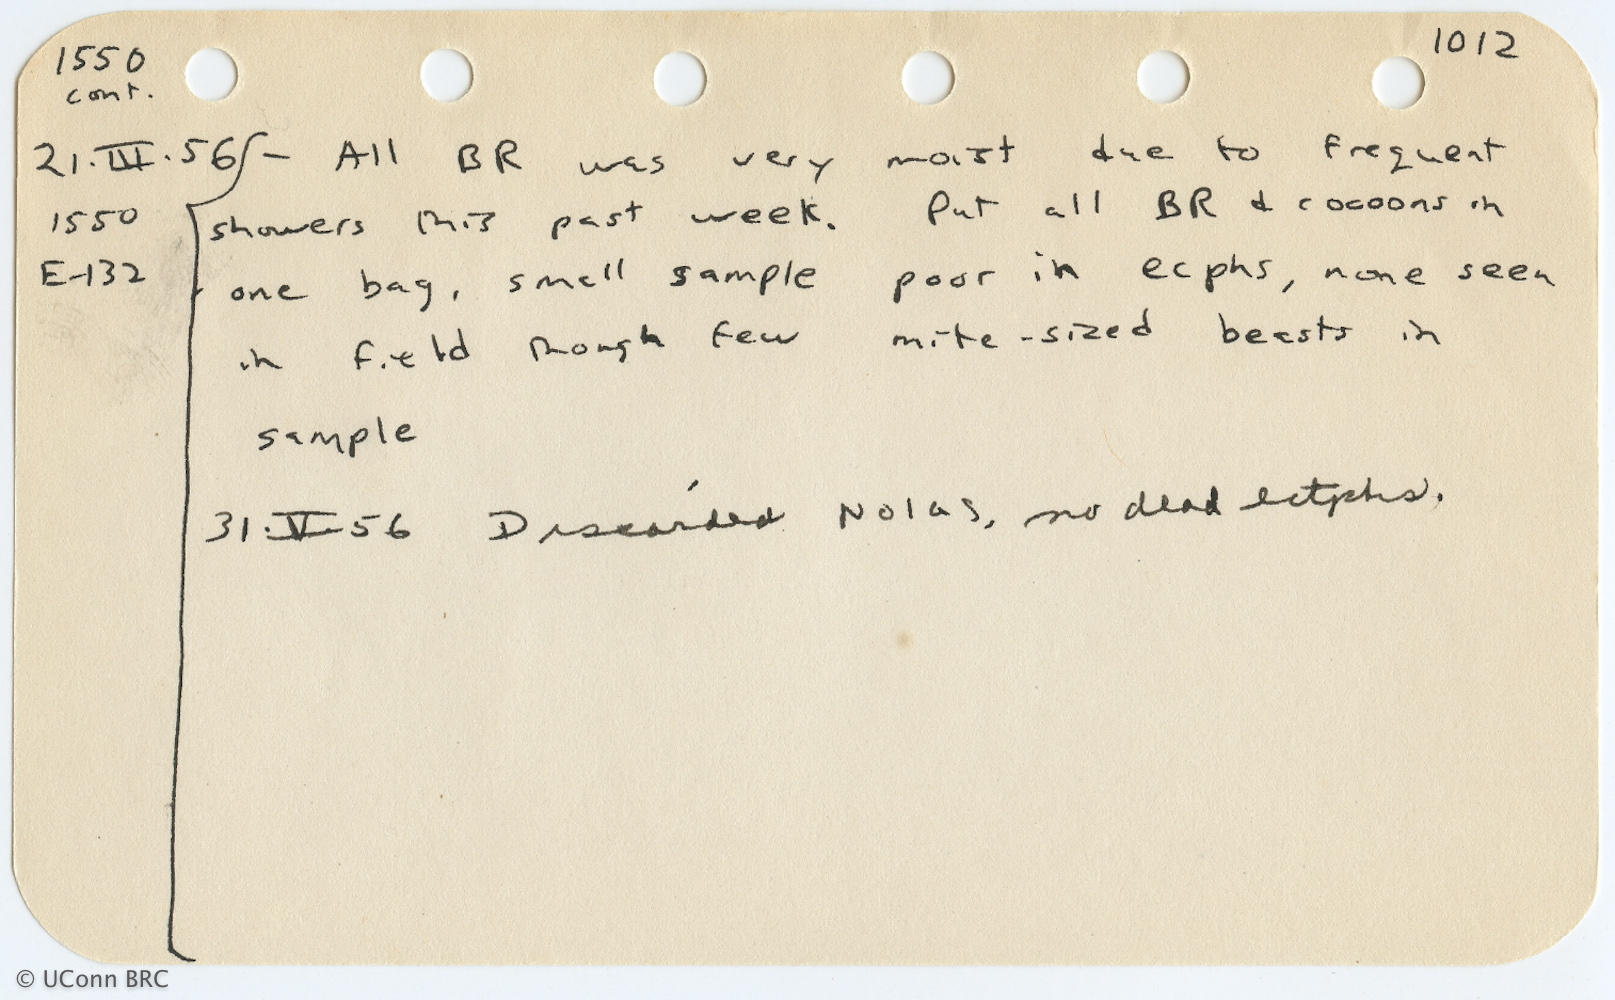 1550
cont.
1012
21·III·56 - All BR was very moist due to frequent
1550 showers this past week. Put all BR & cocoons in
E-132 one bag, small sample poor in ecphs, none seen
in field though few mite-sized beasts in
sample
31·V·56 Discarded Nolas, no dead ectphs.
© UConn BRC